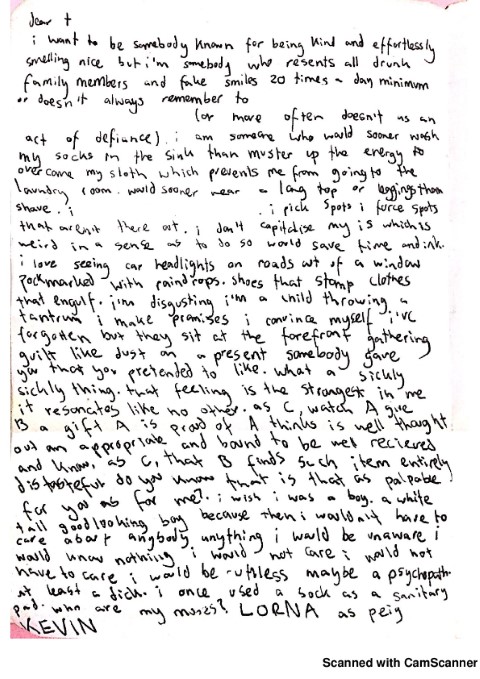 dear t
i want to be somebody known for being kind and effortlessly
smelling nice but i'm somebody who resents all drunk
family members and fake smiles 20 times a day minimum
or doesn't always remember to
(or more often doesn't as an
act of defiance). i am someone who would sooner wash
my socks in the sink than muster up the energy to
overcome my sloth which prevents me from going to the
laundry room. would sooner wear a long top or leggings than
shave. i i pick spots i force spots
that aren't there out. i don't capitalise my is which is
weird in a sense as to do so would save time and ink.
i love seeing car headlights on roads out of a window
pockmarked with raindrops. shoes that stomp clothes
that engulf. i'm disgusting i'm a child throwing a
tantrum i make promises i convince myself i've
forgotten but they sit at the forefront gathering
guilt like dust on a present somebody gave
you that you pretended to like. what a sickly
sickly thing. that feeling is the strangest in me
it resonates like no other. as C, watch A give
B a gift A is proud of A thinks is well thought
out an appropriate and bound to be well recieved
and know, as C, that B finds such item entirely
distasteful do you know that is that as palpable
for you as for me?. i wish i was a boy. a white
tall goodlooking boy because then i wouldn't have to
care about anybody anything i would be unaware i
would know nothing i would not care i would not
have to care i would be ruthless maybe a psychopath.
at least a dick. i once used a sock as a sanitary
pad. who are my muses? LORNA as peig
KEVIN
Scanned with CamScanner